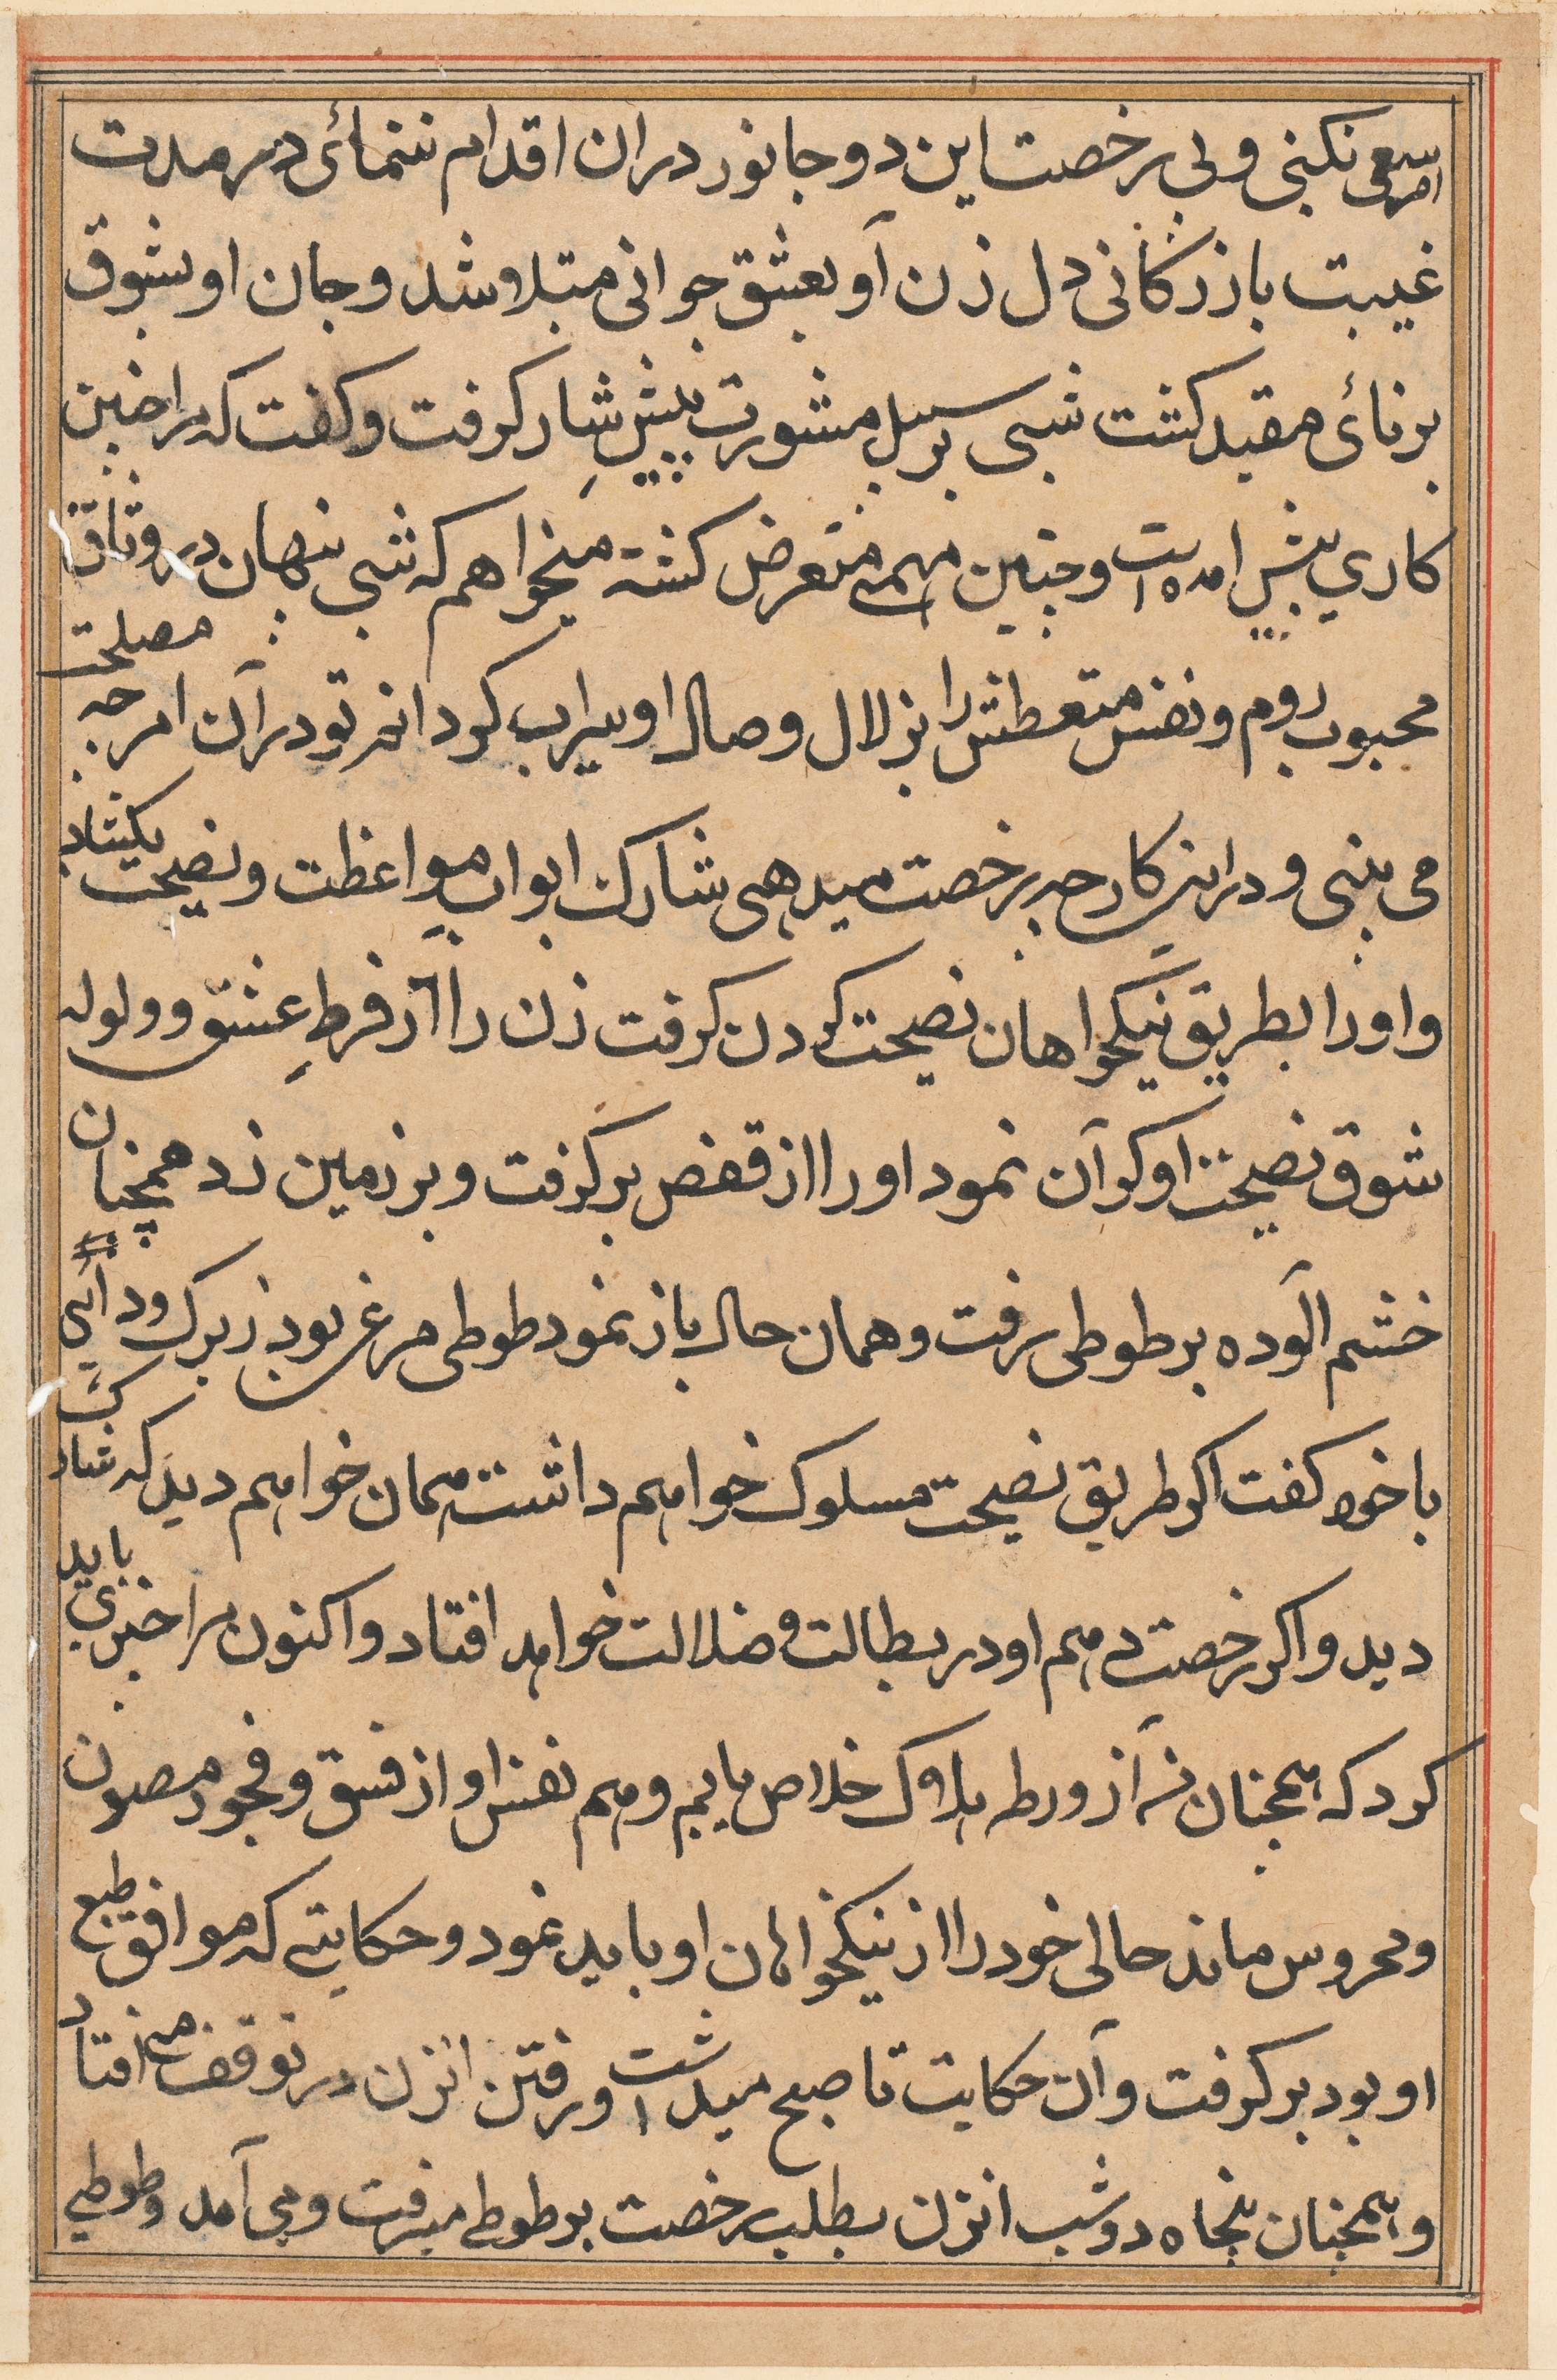 امر سعی نکنی و بی رخصت این دو جانور دران اقدام ننمائی در مدت
غیبت بازرکانی دل زن او بعشق جوانی مبتلا شد و جان او بشوق
برنائی مقید کشت شبی بر سبیل مشورت پیش شار کرفت و کفت که مرا چنین
کاری پیش امده است و چنین مهمی متعرض کشته میخواهم که شبی پنهان در وثاق
محبوب روم و نفس متعطش را بزلال وصال او سیراب کردانم تو در آن امر چه مصلحت
می بینی و در این کار چه رخصت میدهی شارک ابواب مواعظت و نصیحت بکشاد
و اورا بطریق نیکخواهان نصیحت کردن کرفت زن را از فرطِ عشق و ولوله
شوق نصیحت او کران نمود اورا از قفص بر کرفت و بر زمین زد همچنان
خشم الوده بر طوطی رفت و همان حال باز نمود طوطی مرغی بود زیرک و دانی
با خود کفت اکر طریق نصیحت مسلوک خواهم داشت همان خواهم دید که شارک
دید و اکر رخصت دهم او در بطالت و ضلالت خواهد افتاد و اکنون مرا چیزی باید
کرد که همچنان من از ورطه هلاک خلاص یابم و هم نفس او از فسق و فجور مصون
و محروس ماند حالی خود را از نیکخواهان او باید نمود و حکایتی که موافق طبع
او بود بر کرفت و آن حکایت تا صبح میداشت و رفتن انزن در توقف می افتاد
و همچنان پنجاه دو شب انزن بطلب رخصت بر طوطی میرفت و می آمد و طوطی